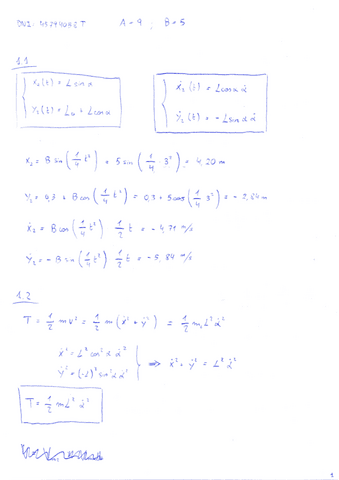 A = 9 ; B = 5
1.1
x₂(t) = L sin α
y₂(t) = L₀ + L cos α
ẋ₂(t) = L cos α α̇
ẏ₂(t) = - L sin α α̇
x₂ = B sin (1/4 t²) = 5 sin (1/4 · 3²) = 4,20 m
y₂ = 0,3 + B cos (1/4 t²) = 0,3 + 5 cos (1/4 3²) = - 2,84 m
ẋ₂ = B cos (1/4 t²) 1/2 t = - 4,71 m/s
ẏ₂ = - B sin (1/4 t²) 1/2 t = - 5,84 m/s
1.2
T = 1/2 m v² = 1/2 m (ẋ² + ẏ²) = 1/2 m L² α̇²
ẋ² = L² cos² α α̇²
ẏ² = (-L)² sin² α α̇²
⇒ ẋ² + ẏ² = L² α̇²
T = 1/2 m L² α̇²